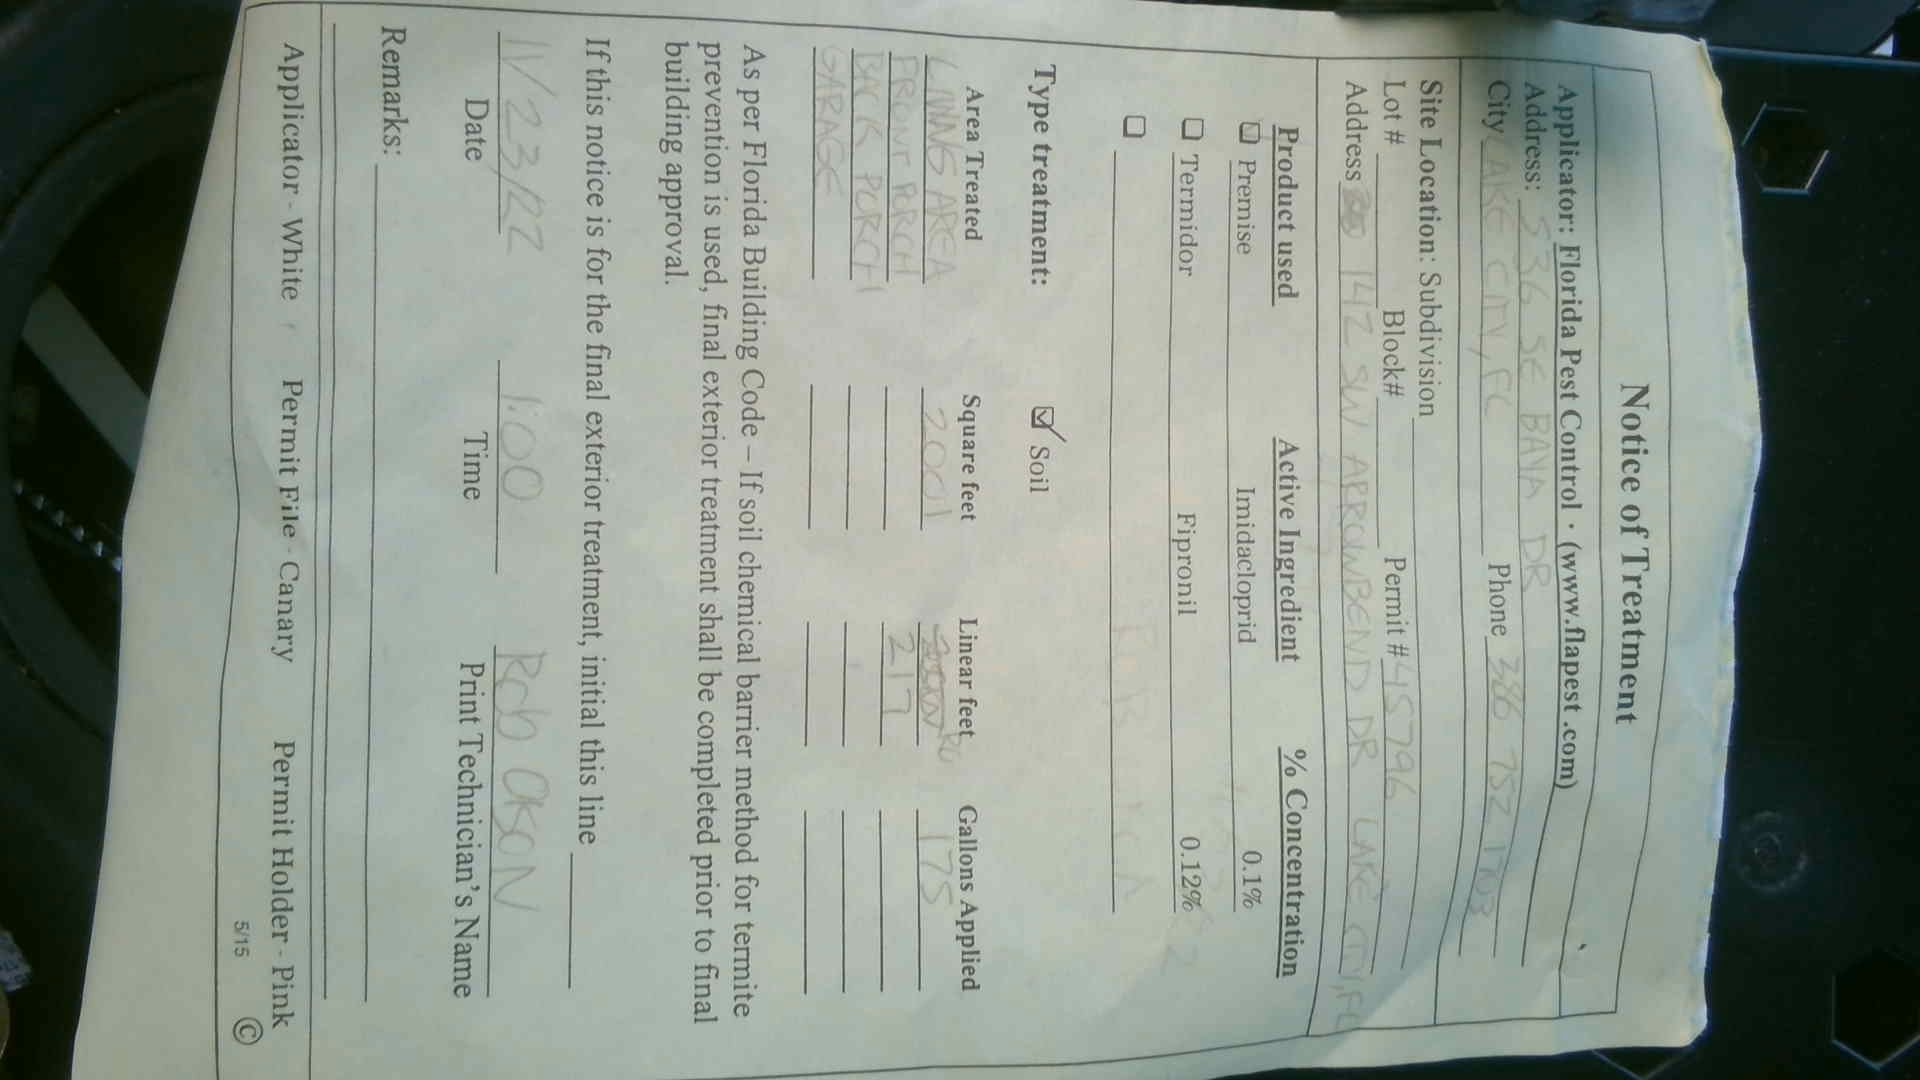 Notice of Treatment
Applicator: Florida Pest Control • (www.flapest.com)
Address: 536 SE BAYA DR
City LAKE CITY, FL Phone 386 752 1703
Site Location: Subdivision
Lot # Block# Permit # 45796
Address 142 SW ARROWBEND DR LAKE CITY, FL
Product used Active Ingredient % Concentration
☐ Premise Imidacloprid 0.1%
☐ Termidor Fipronil 0.12%
☐
Type treatment: ☑ Soil
Area Treated Square feet Linear feet Gallons Applied
LIVING AREA 2001 175
FRONT PORCH 217
BACK PORCH
GARAGE
As per Florida Building Code – If soil chemical barrier method for termite
prevention is used, final exterior treatment shall be completed prior to final
building approval.
If this notice is for the final exterior treatment, initial this line
1:00 Rob
Date Time Print Technician's Name
Remarks:
Applicator - White Permit File - Canary Permit Holder - Pink
5/15 ©